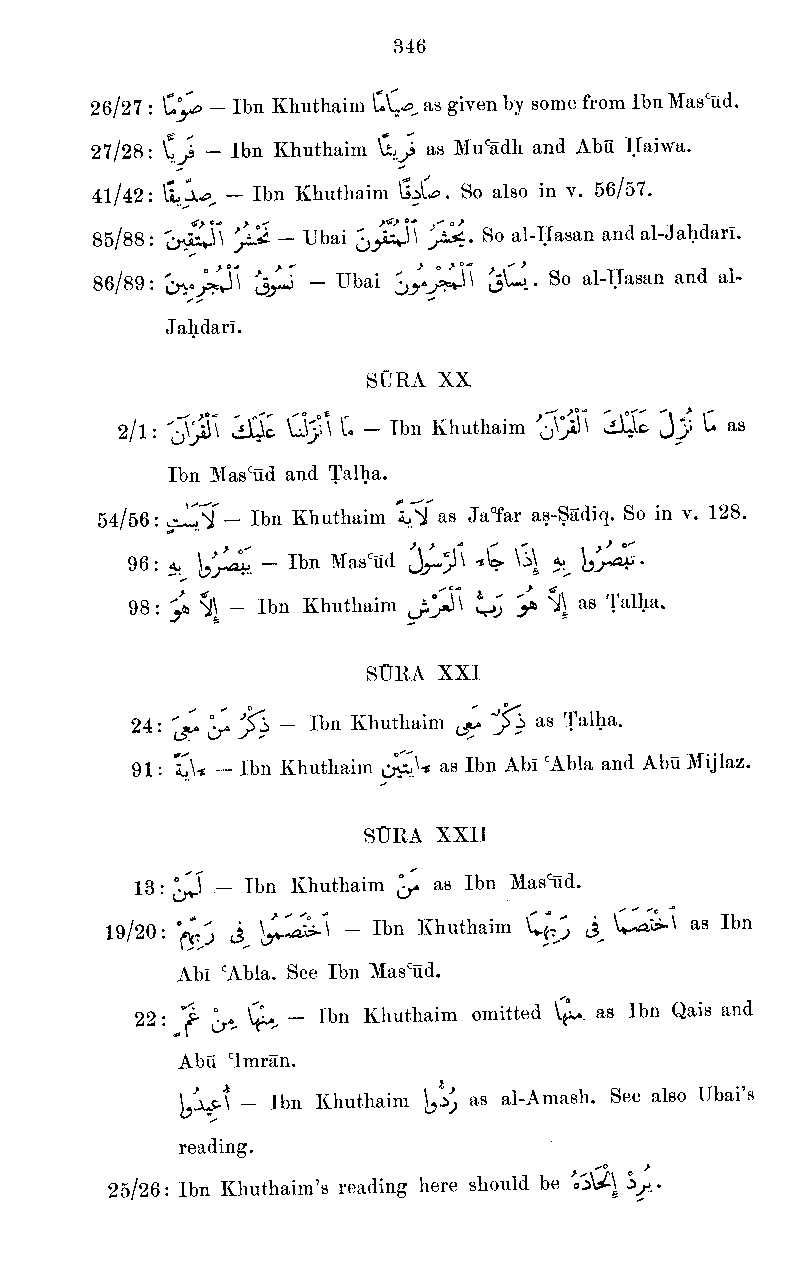 346
26/27: صَوْمًا — Ibn Khuthaim صِيَامًا as given by some from Ibn Masʿūd.
27/28: فَرِيًّا — Ibn Khuthaim فَرِيئًا as Muʿādh and Abū Ḥaiwa.
41/42: صِدِّيقًا — Ibn Khuthaim صَادِقًا. So also in v. 56/57.
85/88: نَحْشُرُ ٱلْمُتَّقِينَ — Ubai يُحْشَرُ ٱلْمُتَّقُونَ. So al-Ḥasan and al-Jaḥdarī.
86/89: نَسُوقُ ٱلْمُجْرِمِينَ — Ubai يُسَاقُ ٱلْمُجْرِمُونَ. So al-Ḥasan and al-
Jaḥdarī.
SŪRA XX
2/1: مَا أَنْزَلْنَا عَلَيْكَ ٱلْقُرْآنَ — Ibn Khuthaim مَا نُزِّلَ عَلَيْكَ ٱلْقُرْآنُ as
Ibn Masʿūd and Ṭalḥa.
54/56: لَآيَٰتٍ — Ibn Khuthaim لَآيَةً as Jaʿfar aṣ-Ṣādiq. So in v. 128.
96: يَبْصُرُوا بِهِ — Ibn Masʿūd تَبْصُرُوا بِهِ إِذَا جَاءَ ٱلرَّسُولُ.
98: إِلَّا هُوَ — Ibn Khuthaim إِلَّا هُوَ رَبُّ ٱلْعَرْشِ as Ṭalḥa.
SŪRA XXI
24: ذِكْرُ مَنْ مَعِىَ — Ibn Khuthaim ذِكْرٌ مَعِى as Ṭalḥa.
91: ءَايَةً — Ibn Khuthaim ءَايَتَيْنِ as Ibn Abī ʿAbla and Abū Mijlaz.
SŪRA XXII
13: لَمَنْ — Ibn Khuthaim مَنْ as Ibn Masʿūd.
19/20: ٱخْتَصَمُوا فِى رَبِّهِمْ — Ibn Khuthaim ٱخْتَصَمَا فِى رَبِّهِمَا as Ibn
Abī ʿAbla. See Ibn Masʿūd.
22: مِنْهَا مِنْ غَمٍّ — Ibn Khuthaim omitted مِنْهَا as Ibn Qais and
Abū ʿImrān.
أُعِيدُوا — Ibn Khuthaim رُدُّوا as al-Amash. See also Ubai's
reading.
25/26: Ibn Khuthaim's reading here should be يُرِدْ إِلْحَادَهُ.